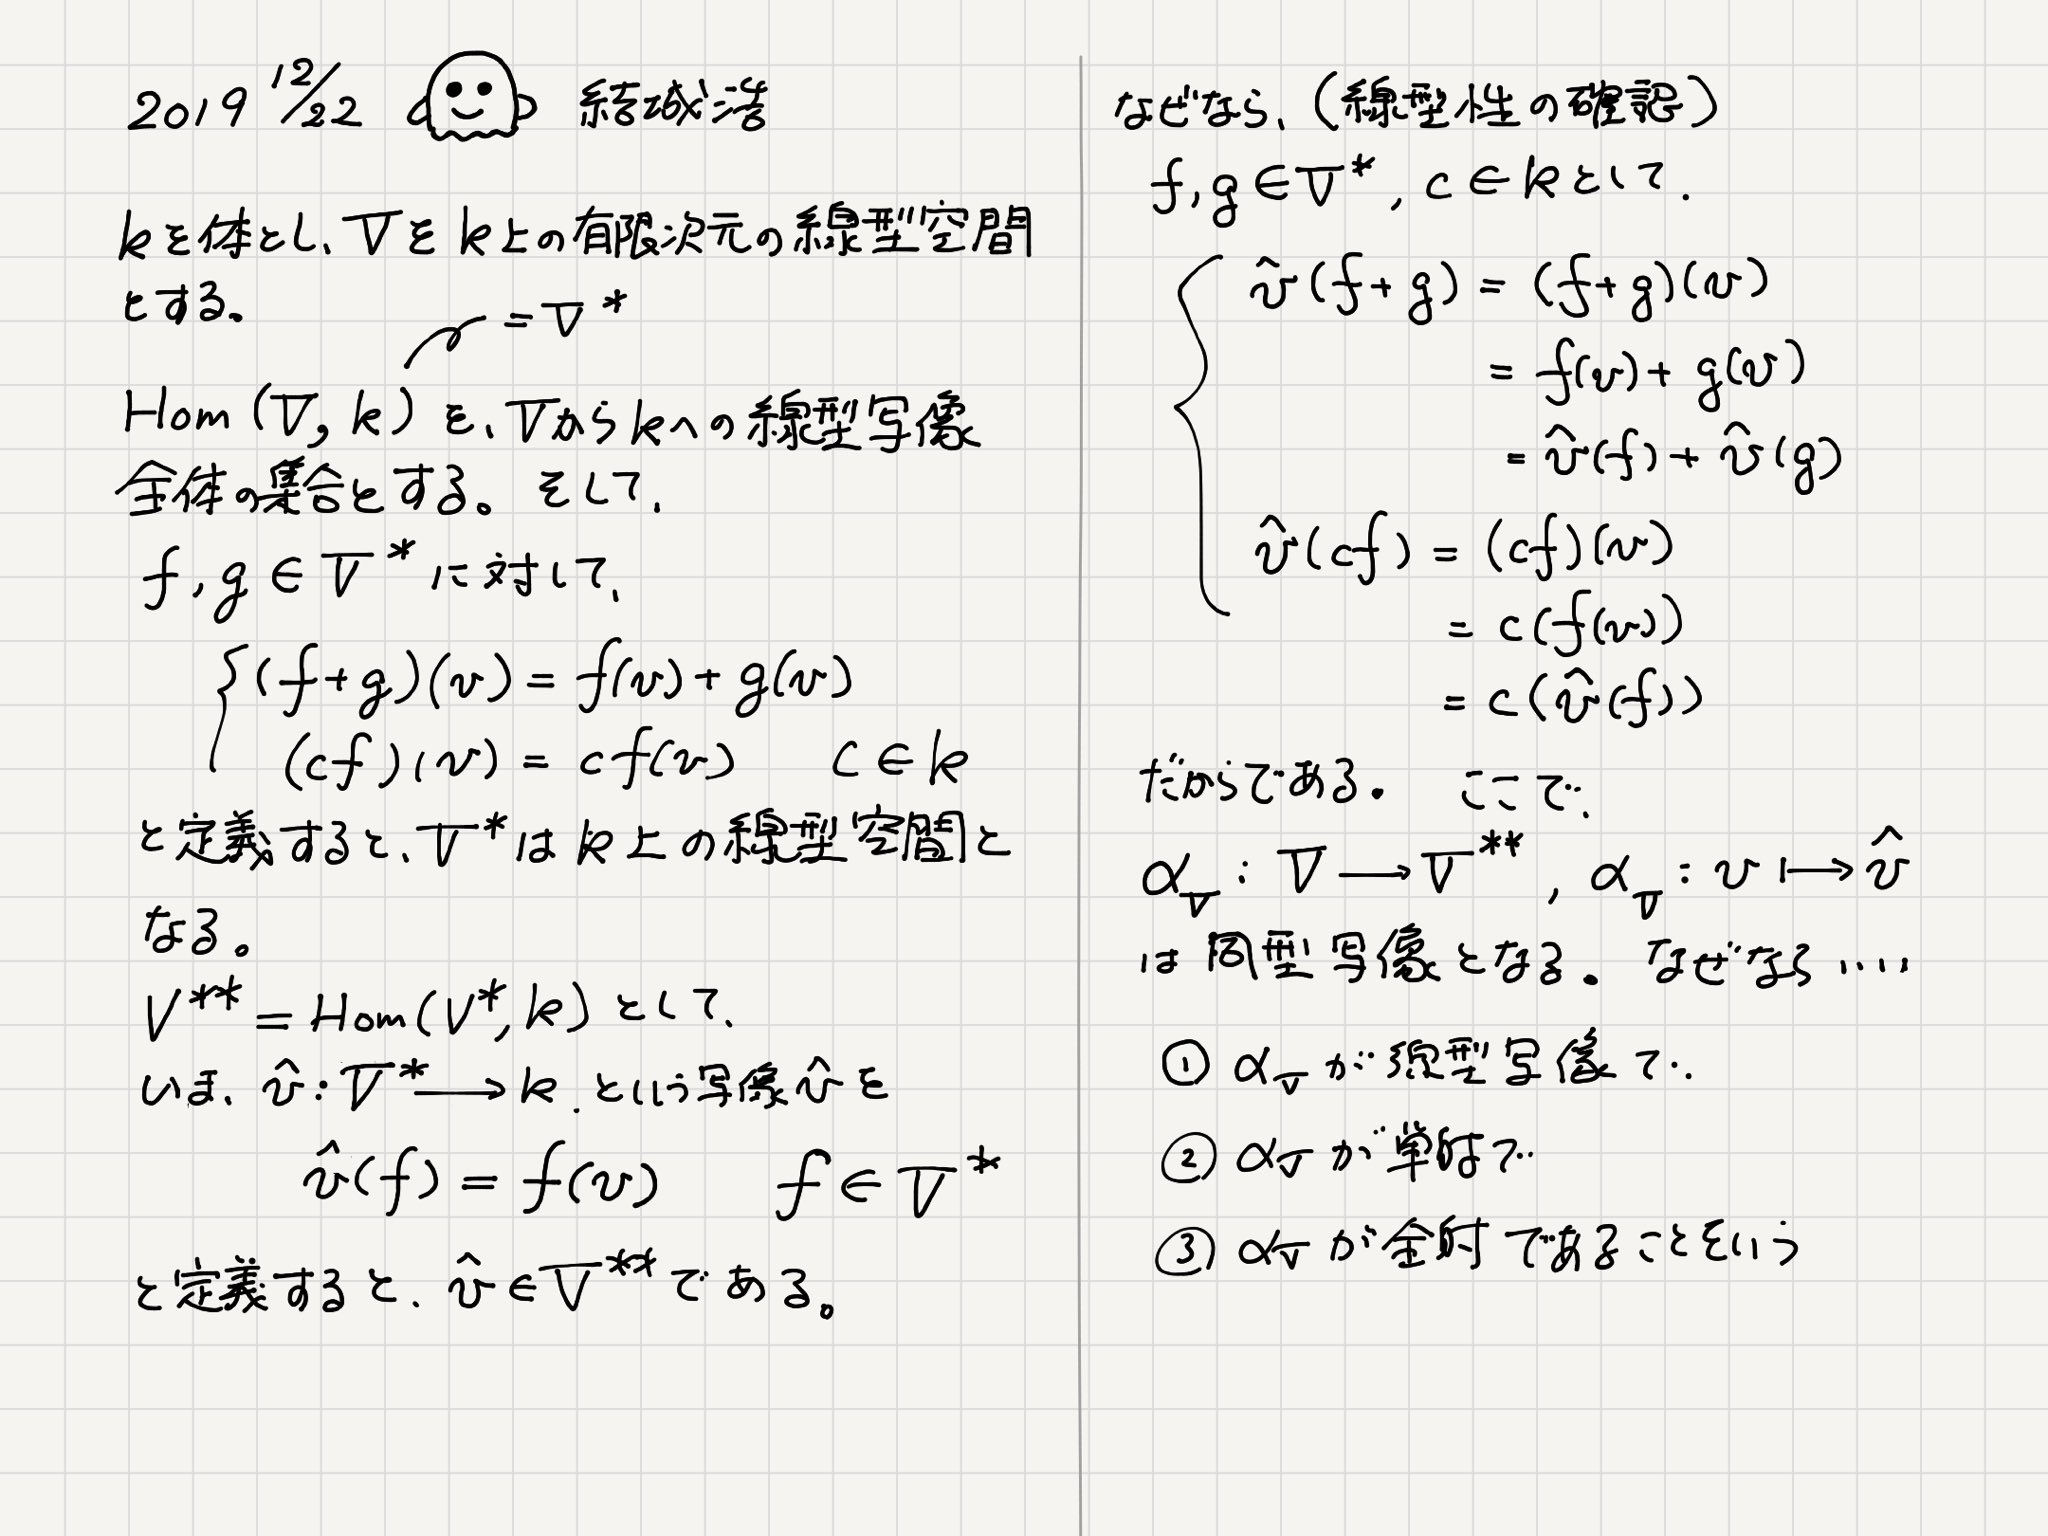 2019 12/22 結城浩
kを体とし、Vをk上の有限次元の線型空間
とする。
= V*
Hom(V, k)を、Vからkへの線型写像
全体の集合とする。そして、
f, g ∈ V* に対して、
(f+g)(v) = f(v) + g(v)
(cf)(v) = cf(v) c ∈ k
と定義すると、V*はk上の線型空間と
なる。
V** = Hom(V*, k) として、
いま、v̂ : V* ⟶ k、という写像v̂を
v̂(f) = f(v) f ∈ V*
と定義すると、v̂ ∈ V** である。
なぜなら、(線型性の確認)
f, g ∈ V*, c ∈ k として、
v̂(f+g) = (f+g)(v)
= f(v) + g(v)
= v̂(f) + v̂(g)
v̂(cf) = (cf)(v)
= c(f(v))
= c(v̂(f))
だからである。 ここで、
α_V : V ⟶ V**, α_V : v ⟼ v̂
は同型写像となる。なぜなら ‥‥
① α_V が線型写像で、
② α_V が単射で
③ α_V が全射であることをいう